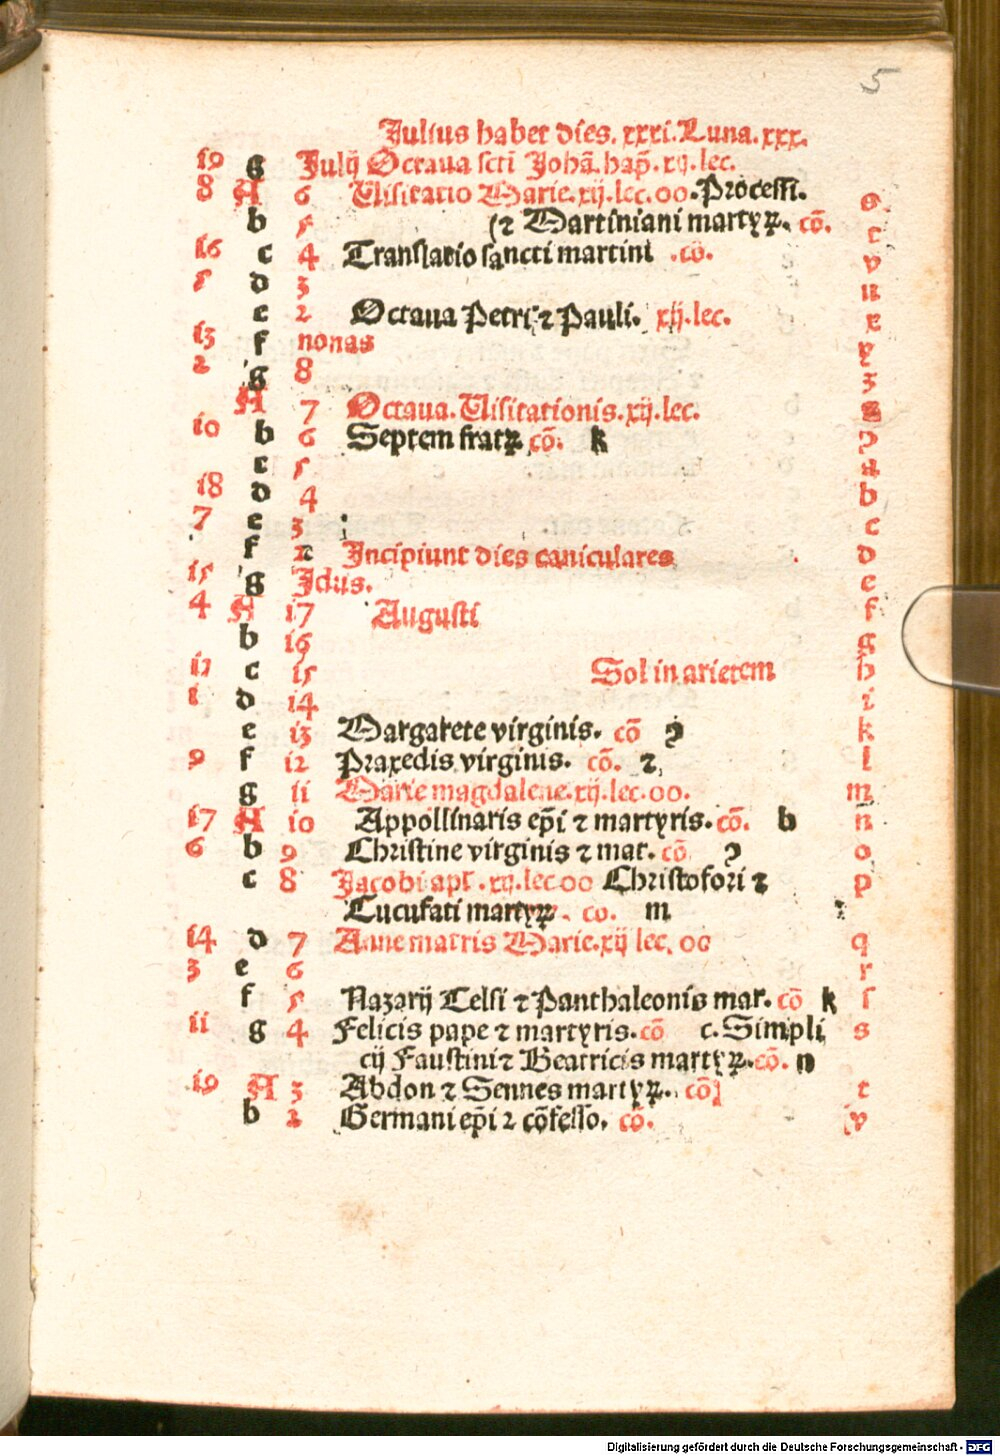 5
Julius habet dies. xxxi. Luna. xxx.
19 g Julij Octaua scti Johā. bap̄. xij. lec.
8 A 6 Uisitatio Marie. xij. lec. oo. Processi. s
b 5 (⁊ Martiniani martyꝝ. cō. t
16 c 4 Translatio sancti martini . cō. v
5 d 3 u
e 2 Octaua Petri ⁊ Pauli. xij. lec. x
13 f nonas y
2 g 8 z
A 7 Octaua. Uisitationis. xij. lec.
10 b 6 Septem fratꝝ cō. k ꝯ
c 5 a
18 d 4 b
7 e 3 c
f 2 Incipiunt dies caniculares d
15 g Idus. e
4 A 17 Augusti f
b 16 g
12 c 15 Sol in arietem h
1 d 14 i
e 13 Margarete virginis. cō ꝯ k
9 f 12 Praxedis virginis. cō. ⁊, l
g 11 Marie magdalene. xij. lec. oo. m
17 A 10 Appollinaris ep̄i ⁊ martyris. cō. b n
6 b 9 Christine virginis ⁊ mar. cō ꝯ o
c 8 Jacobi apl̄. xij. lec oo Christofori ⁊ p
Cucufati martyꝝ. co. m
14 d 7 Anne matris Marie. xij lec. oo q
3 e 6 r
f 5 Nazarij Celsi ⁊ Panthaleonis mar. cō k ſ
11 g 4 Felicis pape ⁊ martyris. cō c. Simpli s
cij Faustini ⁊ Beatricis martyꝝ. cō. n
19 A 3 Abdon ⁊ Sennes martyꝝ. cō t
b 2 Germani ep̄i ⁊ cōfesso. cō. v
Digitalisierung gefördert durch die Deutsche Forschungsgemeinschaft - DFG